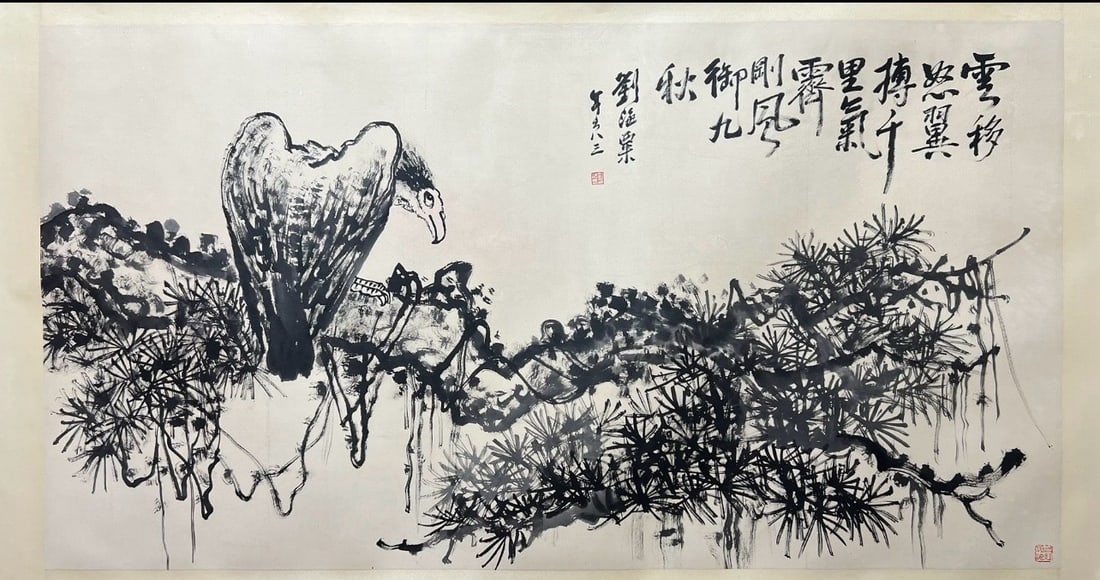 雲移
怒翼
搏千
里氣
霽
剛風
御九
秋
劉海粟
年方八三